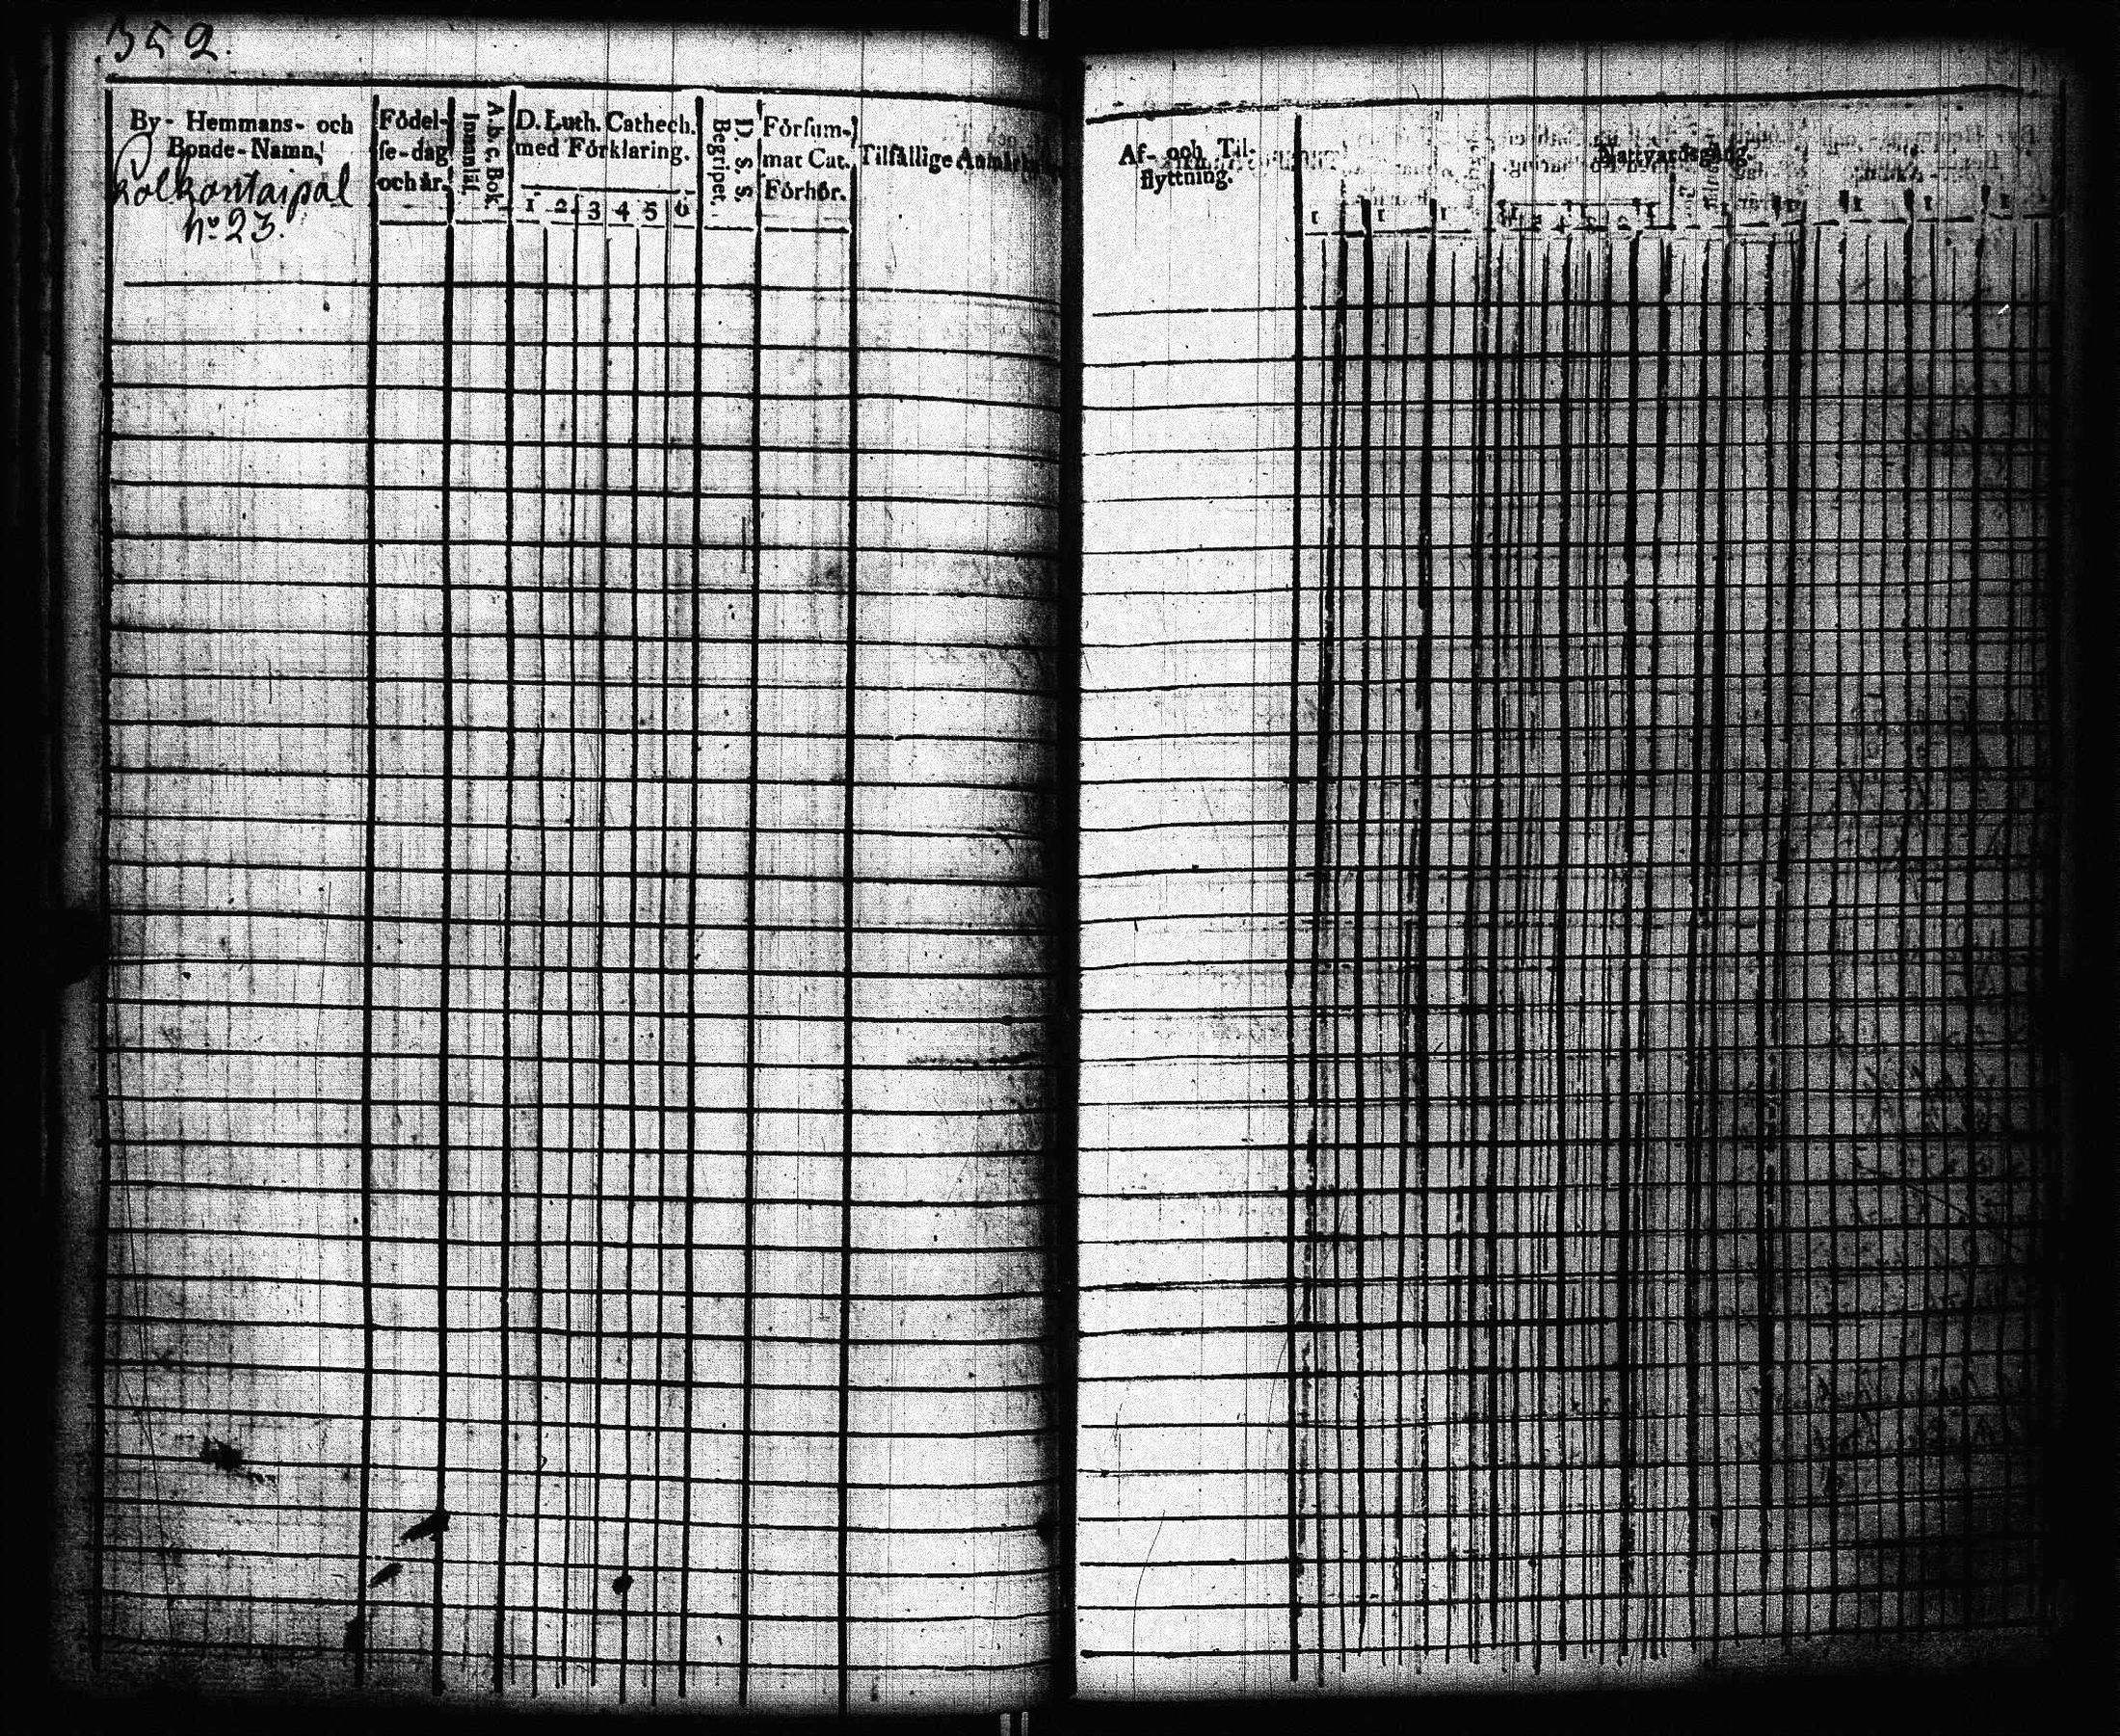 352.
By- Hemmans- och
Bonde-Namn.
Kolkontaipal
No 23.
Födel-
se-dag
och år.
A. b. c. Bok
Innanläs.
D. Luth. Cathech.
med Förklaring.
1 2 3 4 5 6
D. S. S.
Begripet.
Försum-
mat Cat.
Förhör.
Tilfällige
Af- och Til-
flyttning.
Nattvardsgång.
1 1 1 1 1 1